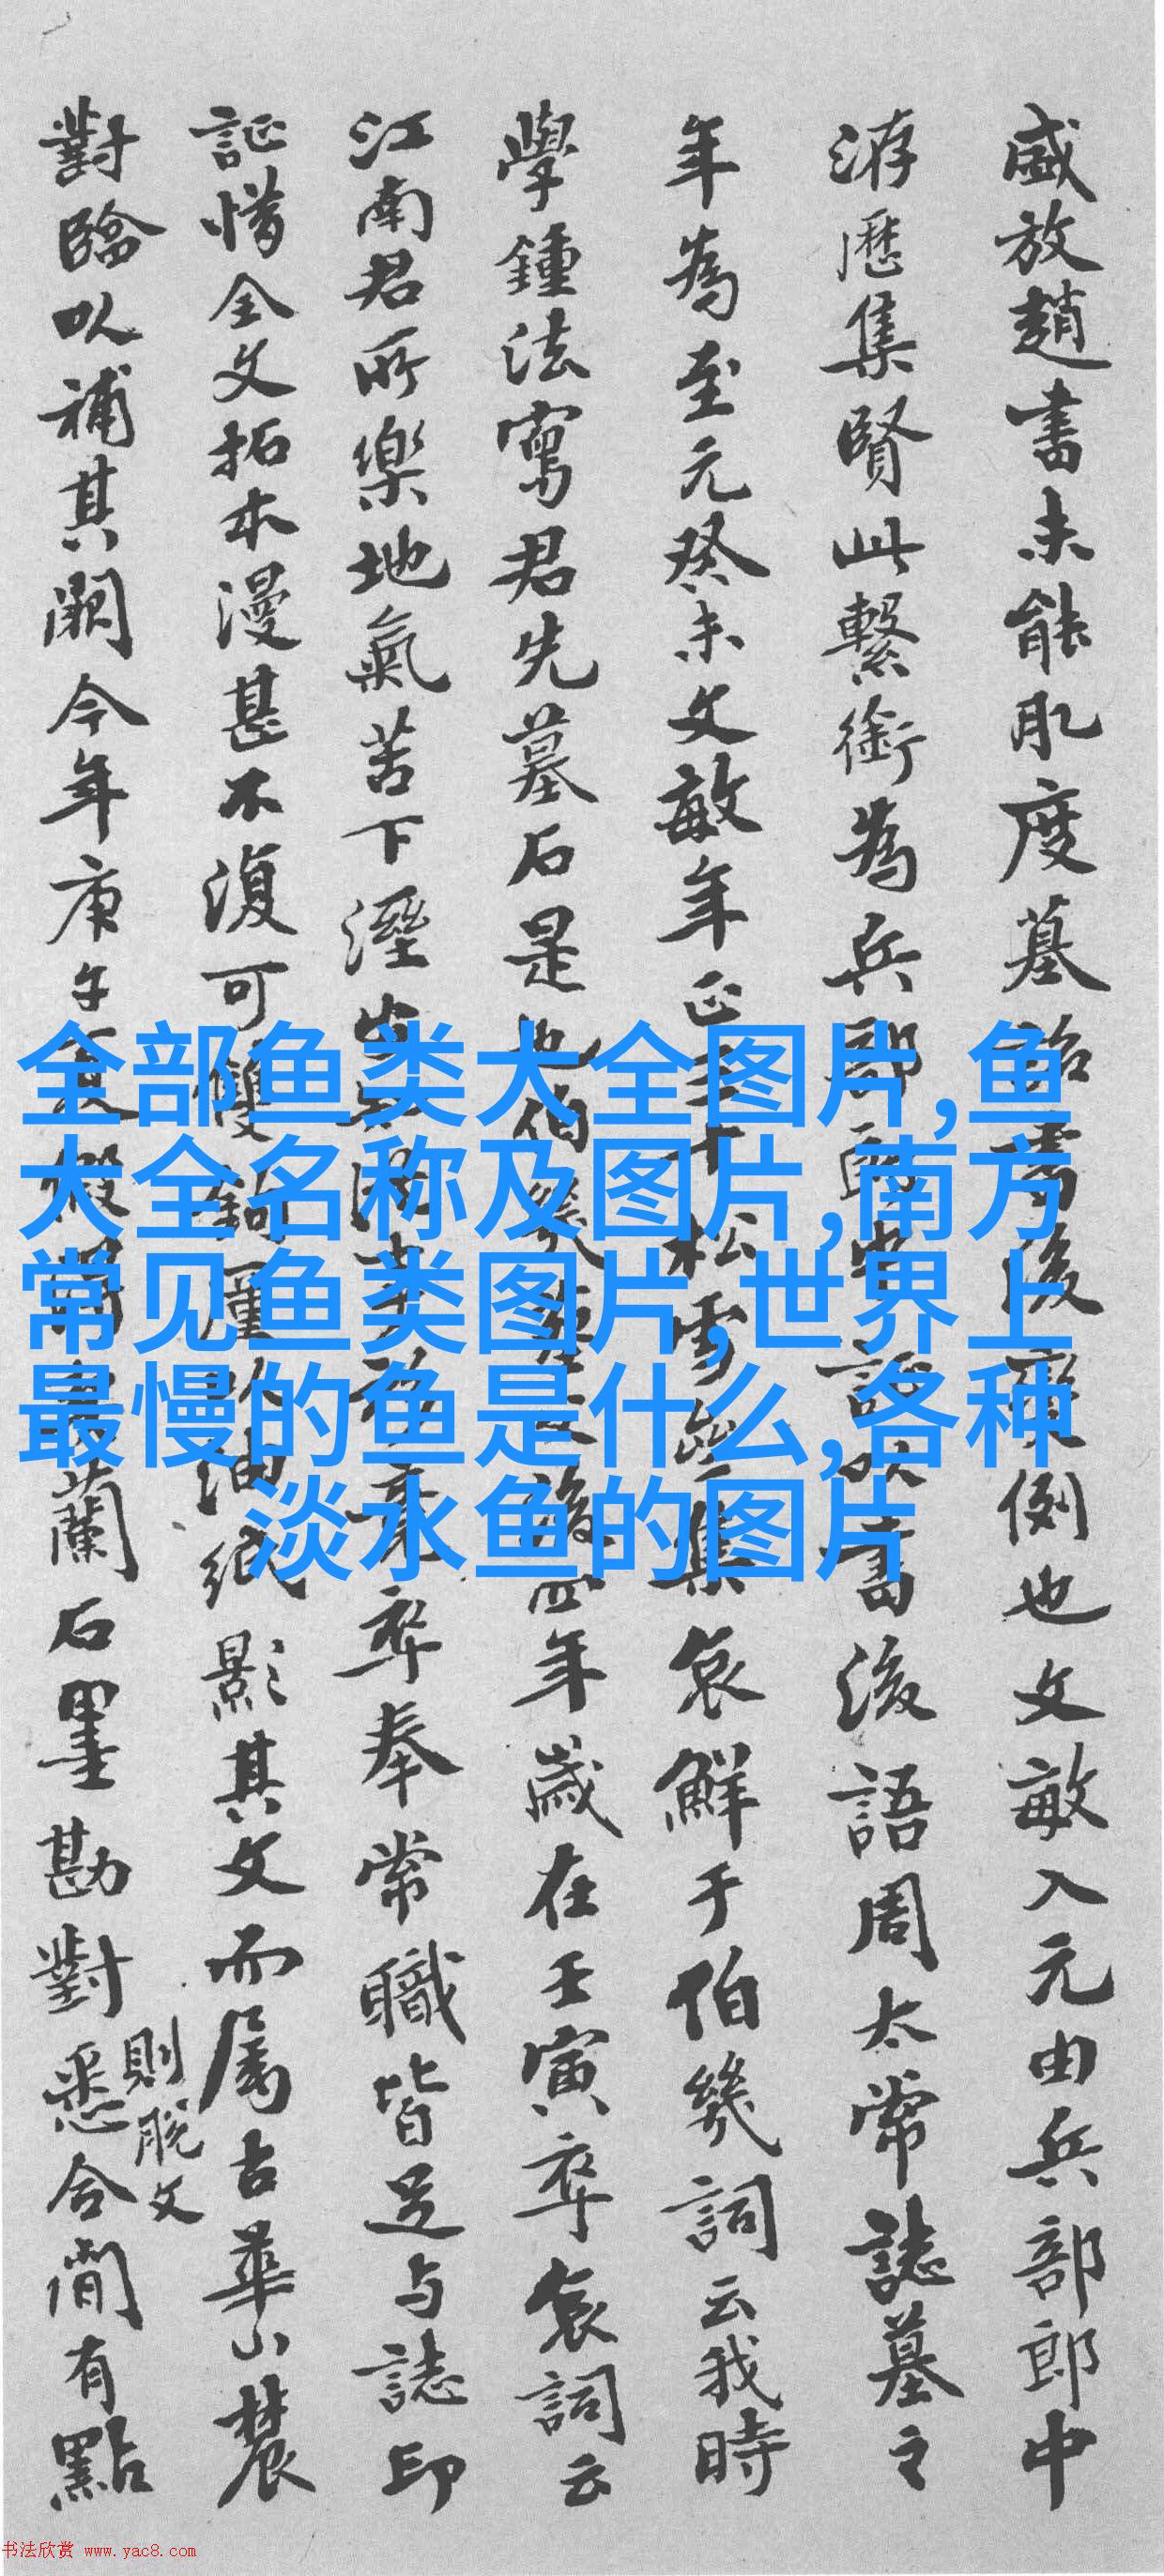 盛放趙書未能肌度墓書後例也文敏入元由兵部郎中
游歷集賢此繫銜為兵部書後語周太常誌墓之
年為至元癸未文敏年正松雪集哀鮮于伯幾詞云我時
學鍾法寫君先墓石是也伯幾後四年歲在壬寅卒哀詞云
江南君所樂地氣苦下溼卒奉常職皆足与誌印
証惜全文拓本漫甚不復可雙油紙影其文而属古華山農
對臨以補其闕今年庚午夏蘭石墨勘對悉合間有點
則脫文
全部鱼类大全图片,鱼
大全名称及图片,南方
常见鱼类图片,世界上
最慢的鱼是什么,各种
淡水鱼的图片
书法欣赏 www.yac8.com